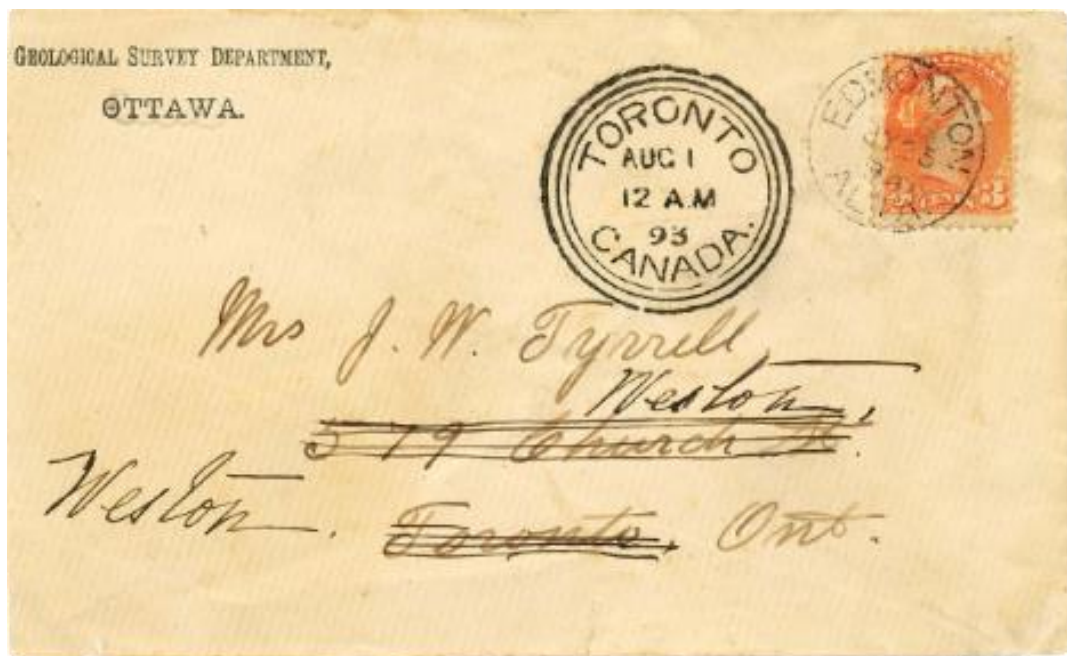 GEOLOGICAL SURVEY DEPARTMENT,
OTTAWA.
TORONTO
AUG 1
12 A.M
93
CANADA.
EDMONTON
ALTA
3 CENTS 3
Mrs J. W. Tyrrell,
Weston,
579 Church St.
Weston. Toronto, Ont.